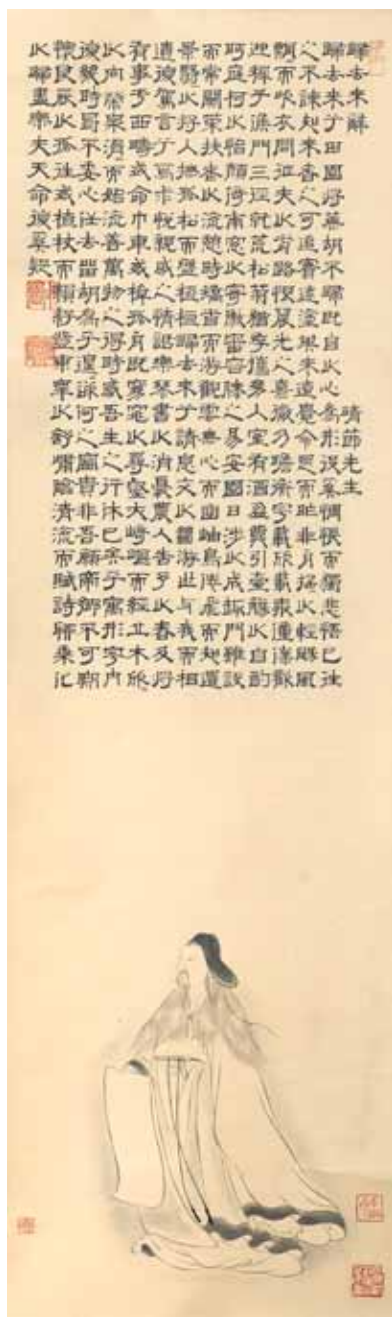 歸去來辭　靖節先生
歸去來兮田園將蕪胡不歸既自以心為形役奚惆悵而獨悲悟已往
之不諫知來者之可追實迷塗其未遠覺今是而昨非舟搖以輕颺風
飄而吹衣問征夫以前路恨晨光之熹微乃瞻衡宇載欣載奔僮僕歡
迎稚子候門三徑就荒松菊猶存攜幼入室有酒盈罇引壺觴以自酌
眄庭柯以怡顏倚南窗以寄傲審容膝之易安園日涉以成趣門雖設
而常關策扶老以流憩時矯首而遐觀雲無心而出岫鳥倦飛而知還
景翳以將入撫孤松而盤桓歸去來兮請息交以絕游世與我而相
遺復駕言兮焉求悅親戚之情話樂琴書以消憂農人告予以春及將
有事乎西疇或命巾車或棹孤舟既窈窕以尋壑亦崎嶇而經丘木欣
以向榮泉涓涓而始流善萬物之得時感吾生之行休已矣乎寓形宇內
復幾時曷不委心任去留胡為乎遑遑何之富貴非吾願帝鄉不可期
懷良辰以孤往或植杖而耘耔登東皋以舒嘯臨清流而賦詩聊乘化
以歸盡樂夫天命復奚疑